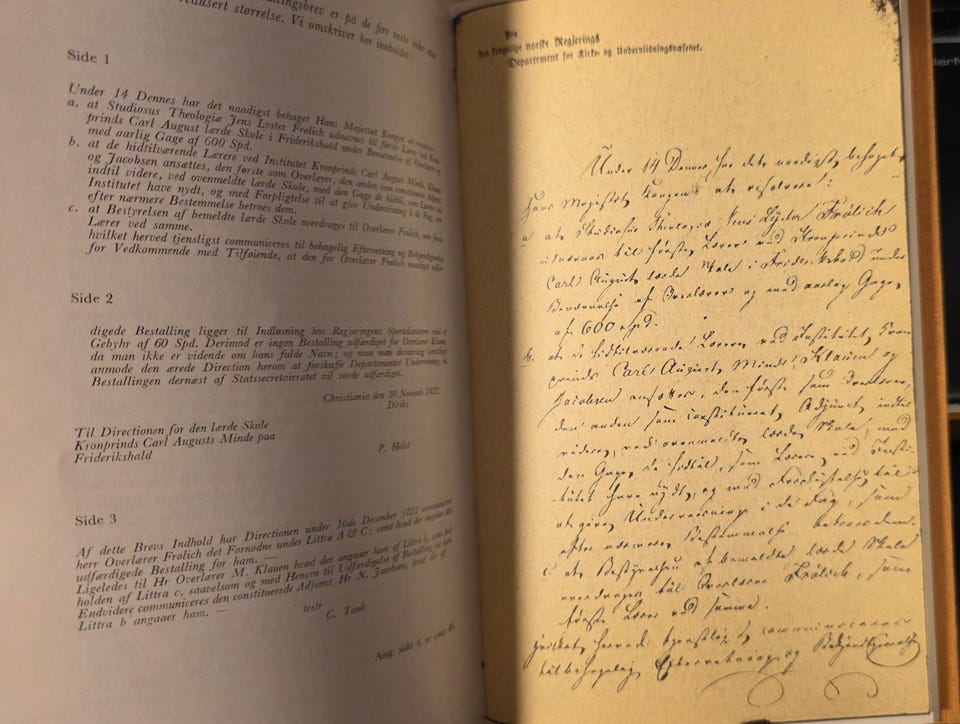 tingsbrev er på de fire neste sider
redusert størrelse. Vi omskriver her innholdet:
Side 1
Under 14 Dennes har det naadigst behaget Hans Majestæt Kongen at
a. at Studiosus Theologiæ Jens Lyster Frølich udnævnes til første Lærer ved Kron-
prinds Carl August lærde Skole i Friderikshald under Benævnelse af Overlærer og
med aarlig Gage af 600 Spd.
b. at de hidtilværende Lærere ved Institutet Kronprinds Carl August Minde, Klauen
og Jacobsen ansættes, den første som Overlærer, den anden som constitueret Adjunct
indtil videre, ved ovenmeldte lærde Skole, med den Gage de hidtil, som Lærere ved
Institutet have nydt, og med Forpligtelse til at give Underviisning i de Fag, som
efter nærmere Bestemmelse betroes dem.
c. at Bestyrelsen af bemeldte lærde Skole overdrages til Overlærer Frølich, som første
Lærer ved samme.
hvilket herved tjenstligst communiceres til behagelig Efterretning og Bekjendtgjørelse
for Vedkommende med Tilføiende, at den for Overlærer Frølich naadigst udfær-
Side 2
digede Bestalling ligger til Indløsning hos Regjeringens Sportelcasserer med et
Gebyhr af 60 Spd. Derimod er ingen Bestalling udfærdiget for Overlærer Klauen,
da man ikke er vidende om hans fulde Navn; og maa man desaarsag tjenstligst
anmode den ærede Direction herom at forskaffe Departementet Underretning, da
Bestallingen dernæst af Statssecretairratet vil vorde udfærdiget.
Christiania den 30 Novemb 1822
Diriks
Til Directionen for den lærde Skole
Kronprinds Carl Augusts Minde paa
Friderikshald
P. Holst
Side 3
Af dette Brevs Indhold har Directionen under 10de December 1822 communiceret
herr Overlærer Frølich det Fornødne under Littra A & C; samt hvad der angaaer den
udfærdigede Bestalling for ham. —
Ligeledes til Hr Overlærer M. Klauen hvad der angaaer ham af Littra b, samt Ind-
holden af Littra c, saavelsom og med Hensyn til Udfærdigelse af Bestalling for ham.
Endvidere communiceres den constituerede Adjunct Hr N. Jacobsen, hvad der af
Littra b angaaer ham. —
testr
C. Tank
Ang. side 4, se pag. 48
Den
den kongelige norske Regjerings
Departement for Kirke- og Underviisningsvæsenet.
Under 14 Dennes har det naadigst behaget
Hans Majestæt Kongen at resolvere:
a at Studiosus Theologiæ Jens Lyster Frölich
udnævnes til første Lærer ved Kronprindts
Carl August lærde Skole i Friderikshald under
Benævnelse af Overlærer og med aarlig Gage
af 600 Spd.
b. at de hidtilværende Lærere ved Institutet, Kron-
prinds Carl August Minde, Klauen og
Jacobsen ansættes, den første som Overlærer,
den anden som constitueret Adjunct, indtil
videre, ved ovenmeldte lærde Skole, med
den Gage, de hidtil, som Lærere, ved Insti-
tutet have nydt, og med Forpligtelse til
at give Underviisning i de Fag, som
efter nærmere Bestemmelse betroes dem.
c at Bestyrelsen af bemeldte lærde Skole
overdrages til Overlærer Frölich, som
første Lærer ved samme.
hvilket herved tjenstligst communiceres
til behagelig Efterretning og Bekjendtgjørelse